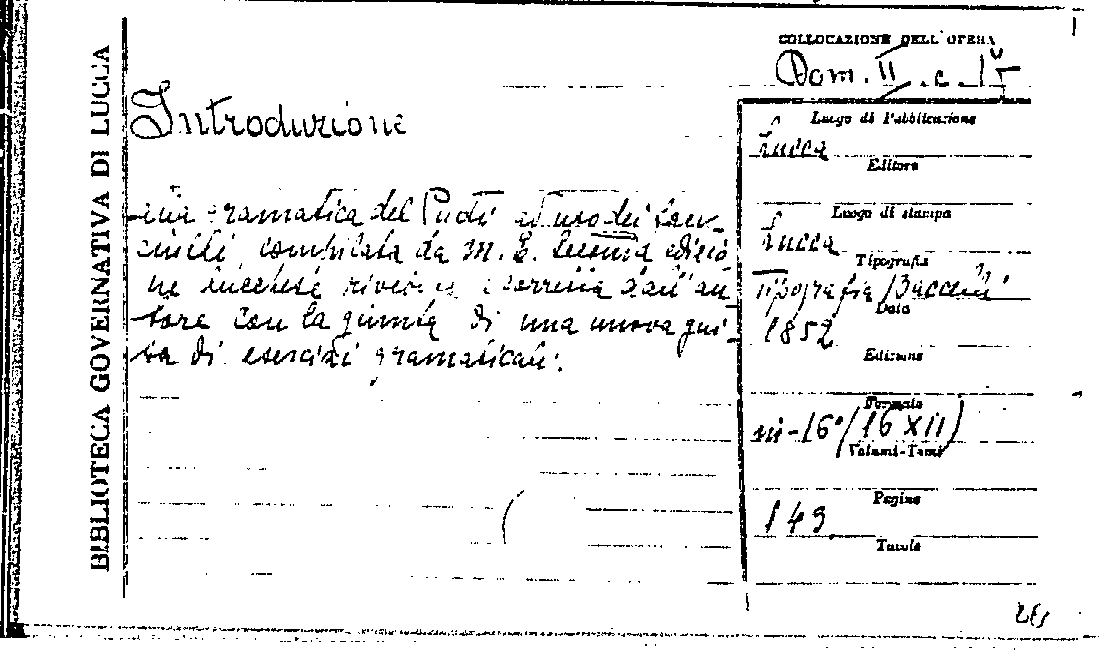 BIBLIOTECA GOVERNATIVA DI LUCCA
COLLOCAZIONE DELL'OPERA
Dom. II. c. 15
Introduzione
alla gramatica del Puoti ad uso dei fan-
ciulli, compilata da M. E. Seconda edizio
ne lucchese rivista e corretta dall'au
tore con la giunta di una nuova gui-
sa di esercizi gramaticali.
Luogo di Pubblicazione
Lucca
Editore
Luogo di stampa
Lucca
Tipografia
Tipografia Baccelli
Data
1852
Edizione
Formato
in-16° (16 X 11)
Volumi-Tomi
Pagine
149
Tavole